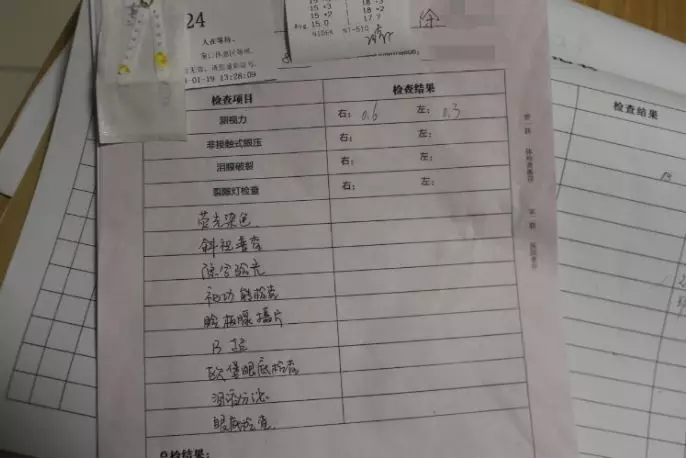 24
人在等待。
01-19 13:28:09
15 *3 18 -3
15 *2 18 *2
15.0 17.7
徐
检查项目 检查结果
测视力 右: 0.6 左: 0.3
非接触式眼压 右: 左:
泪膜破裂 右: 左:
裂隙灯检查 右: 左:
荧光染色
斜视普查
综合验光
视功能检查
睑板腺摄片
B超
欧堡眼底检查
泪液分泌
眼底检查
总检结果:
检查结果